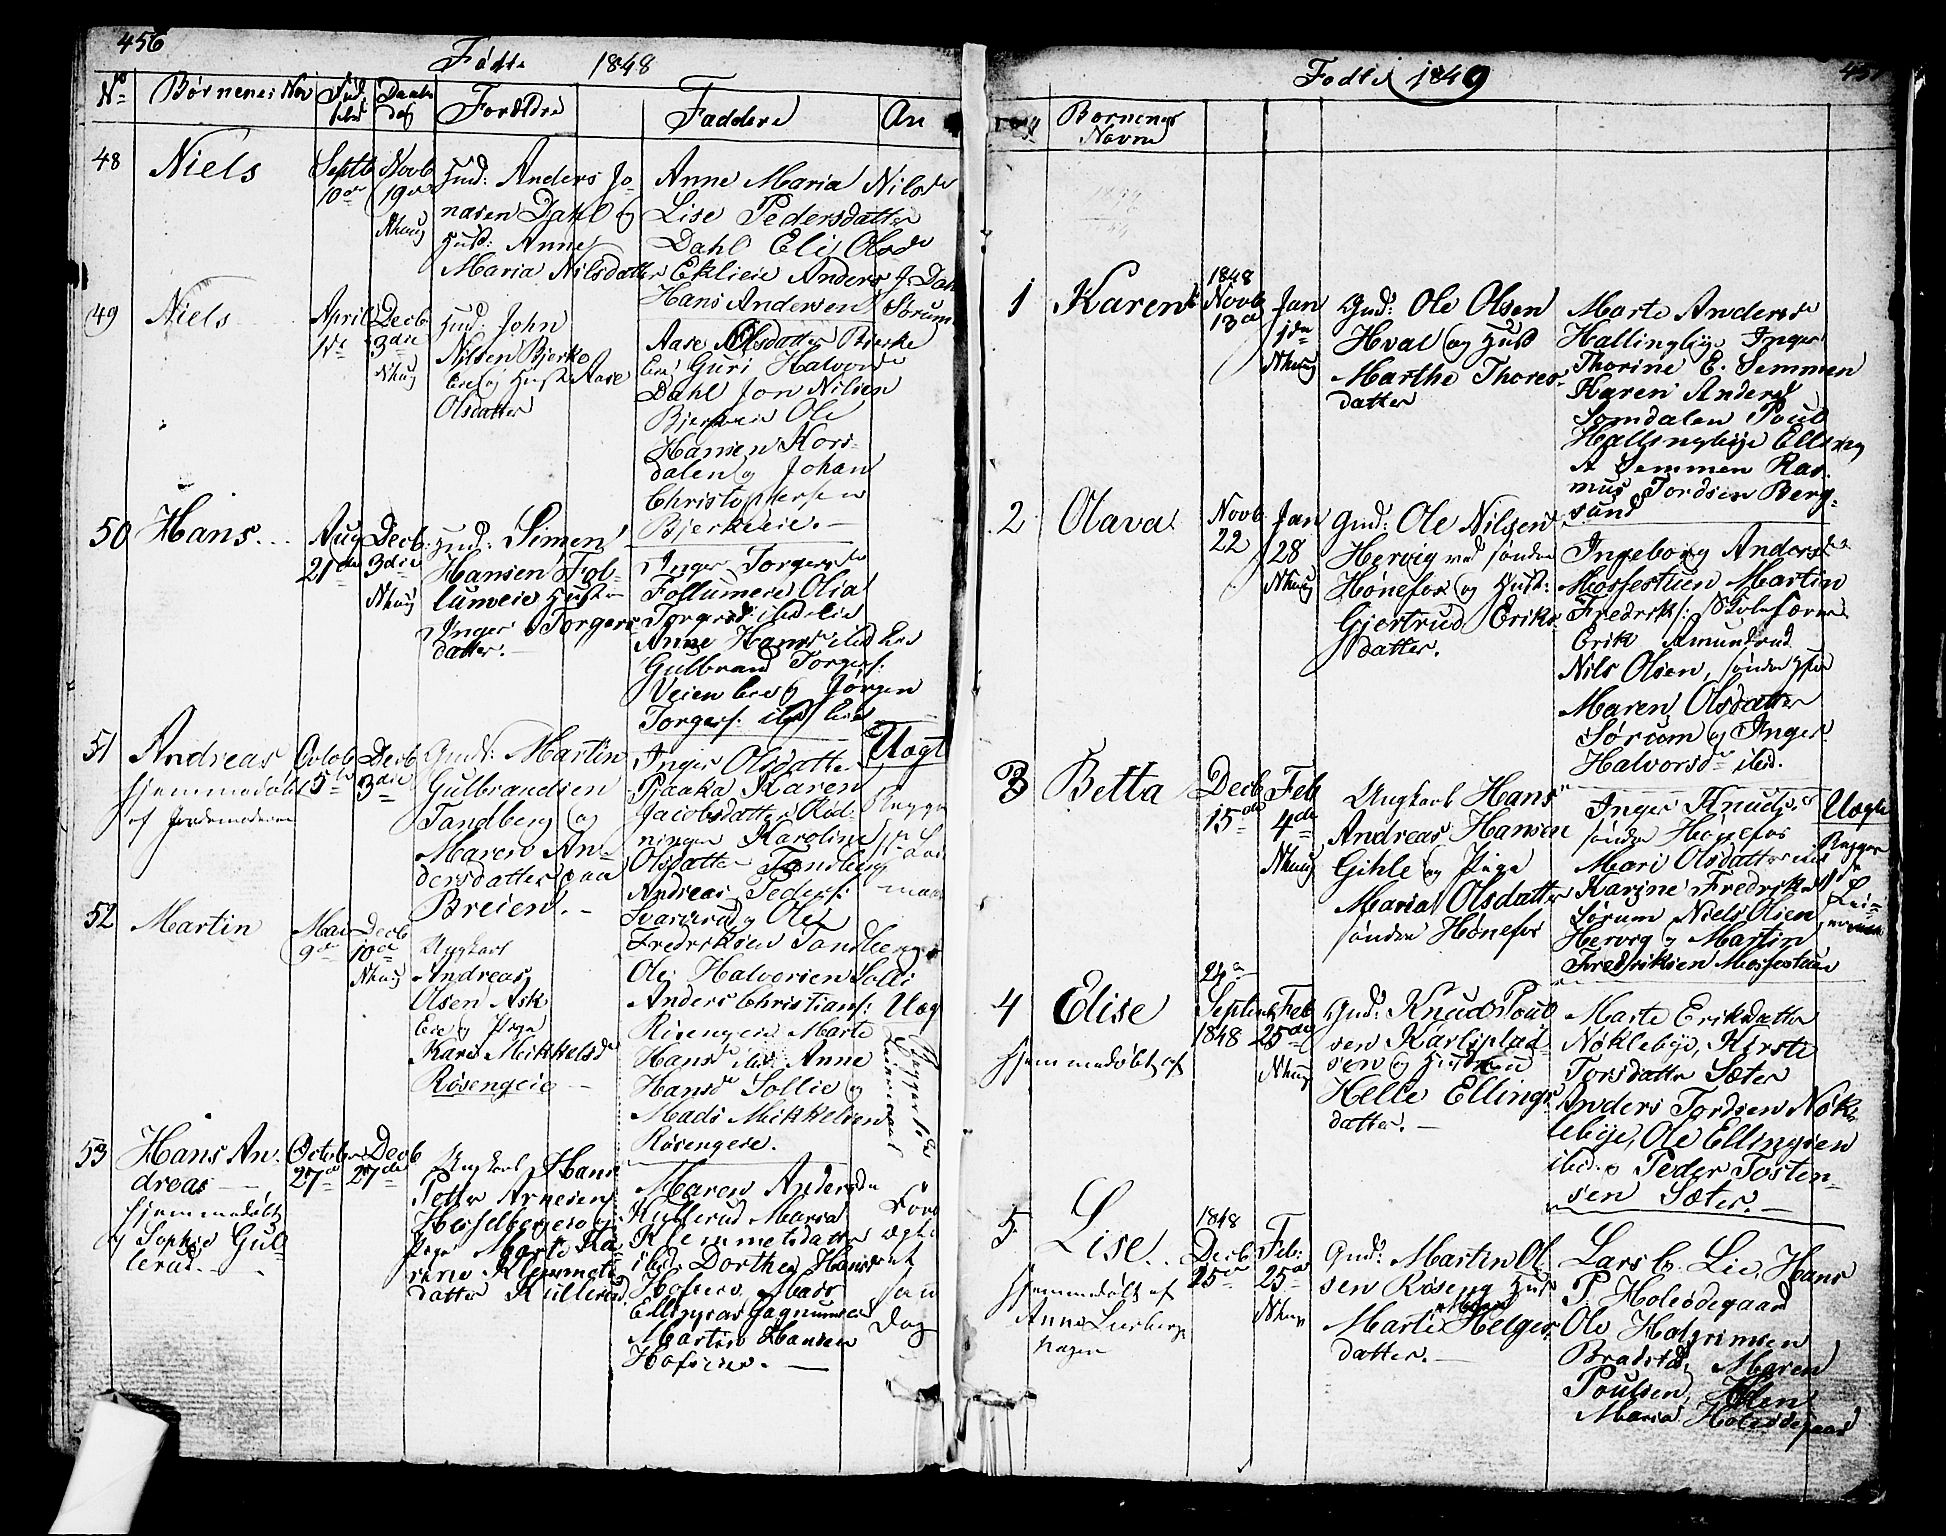 456
Fødte 1848
No Børnenes Nav Fød Daabs dag Forældre Faddere An
48 Niels
Septb 10de
Novb 19de
Nhaug
Gud: Anders Jo
nasen Dahl og
Hust: Anne
Maria Nilsdatter
Anne Maria Nilsdr
Lise Pedersdatter
Dahl Eli Olsdr
Anders J. Dahl
Hans Andersen Sørum
49 Niels
April
Decb 3die
Nhug
Gud: John
Nilsen Bjerke
Eie og Hust Aase
Olsdatter
Aase Olsdatter Bjerke
Eie Guri Halvorsdr
Dahl Jon Nilsen
Bjerkeeie Ole
Hansen Kors
dalen og Johan
Christophersen
Bjerkeeie.
50 Hans
Aug 21de
Decb: 3die
Nhug
Gud: Simen
Hansen Fol-
lumeie Hust
Inger Torgers
datter.
Inger Torgersdr
Follumeie Olia
Torgersd: ibd eie
Anne Hansdr ibd Eie
Gulbrand Torgers:
Veien Eie og Jørgen
Torgers: ibd Eie
51 Andreas
hjemmedøbt
af Jordemoderen
Octob 5te
Decb 3die
Gud: Martin
Gulbrandsen
Tandberg og
Maren An-
dersdatter paa
Breien.
Inger Olsdatter
Pjaaka Karen
Jacobsdatter Rød-
ningen Karoline
Olsdatter Tandberg
Andreas Peders:
Svarverud og Ole
Fredriksen Tandberg
Uægt
52 Martin
Mai 9de
Decb 10de
Nhaug
Ungkarl
Andreas
Olsen Ask
Eie og Pige
Kari Mikkelsdr
Rosengeie
Ole Halvorsen Solli
Anders Christians:
Rosengeie Marte
Hansdr ibd Anne
Hansdr Sollie og
Mads Mikkelsen
Rosengeie.
Uæg
53 Hans An-
dreas
hjemmedøbt
af Sophie Gul-
lerud.
October 27de
Decb 27de
Ungkarl Hans
Petter Arnesen
Hesselbergeie og
Pige Marte Ka-
rine Klemmets
datter Kullerud.
Maren Andersdr
Kullerud Maria
Klemmetsdatter
ibd. Dorthea Hansdr
Hofseie, Mads
Ellingsen Gagnumeie
Martin Hansen
Hofseie.
Dag
Fødte 1849
457
Børnenes Navne
1 Karen
1848 Novb 13de
Jan 1de
Nhaug
Gud: Ole Olsen
Hval og Hust
Marthe Thores-
datter
Marte Andersdr
Hallingbye Inger
Thorine E. Semmen
Karen Andersd
Somdalen Poul
Hallingbye Elling
A Semmen Ras-
mus Tordsen Berg-
sund
2 Olava
Novb 22
Jan 28
Nhaug
Gud: Ole Nilsen
Hervig ved søndre
Hønefos og Hust:
Gjertrud Eriks
datter.
Ingeborg Andersdr
Mosfestuen Martin
Fredriks:
Erik Amundrud
Nils Olsen, søndre Hfos
Maren Olsdatter
Sørum og Inger
Halvorsdr ibid.
3 Betta
Decb 15de
Feb 4de
Nhaug
Ungkarl Hans
Andreas Hansen
Gihle og Pige
Maria Olsdatter
søndre Hønefos
Inger Knudsdr
søndre Hønefos
Mari Olsdatter ibd
Karine Fredriksd
Sørum Niels Olsen
Hervig og Martin
Fredriksen Mosfestuen
Uægte
Begges
1ste Lei-
ermaal
4 Elise
hjemmedøbt af
24de Septemb 1848
Feb 25de
Nhaug
Gud: Knud Poul
sen Karlsplad-
sen og Hustru
Helle Ellings
datter.
Marte Eriksdatter
Nøklebye, Kirsti
Torsdatter Sæter
Anders Tordsen Nøk-
lebye, Ole Ellingsen
ibd. og Peder Tosten-
sen Sæter.
5 Lise
hjemmedøbt af
Anne Lusberg
hagen
1848 Decb: 25de
Feb: 25de
Nhaug
Gud: Martin Ol
sen Røseng Hust
Marte Helges
datter.
Lars C. Lie, Hans
P. Holesdegaard
Ole Halgrimsen
Bradstad, Maren
Poulsen, Helen
Maria Holesdegaard